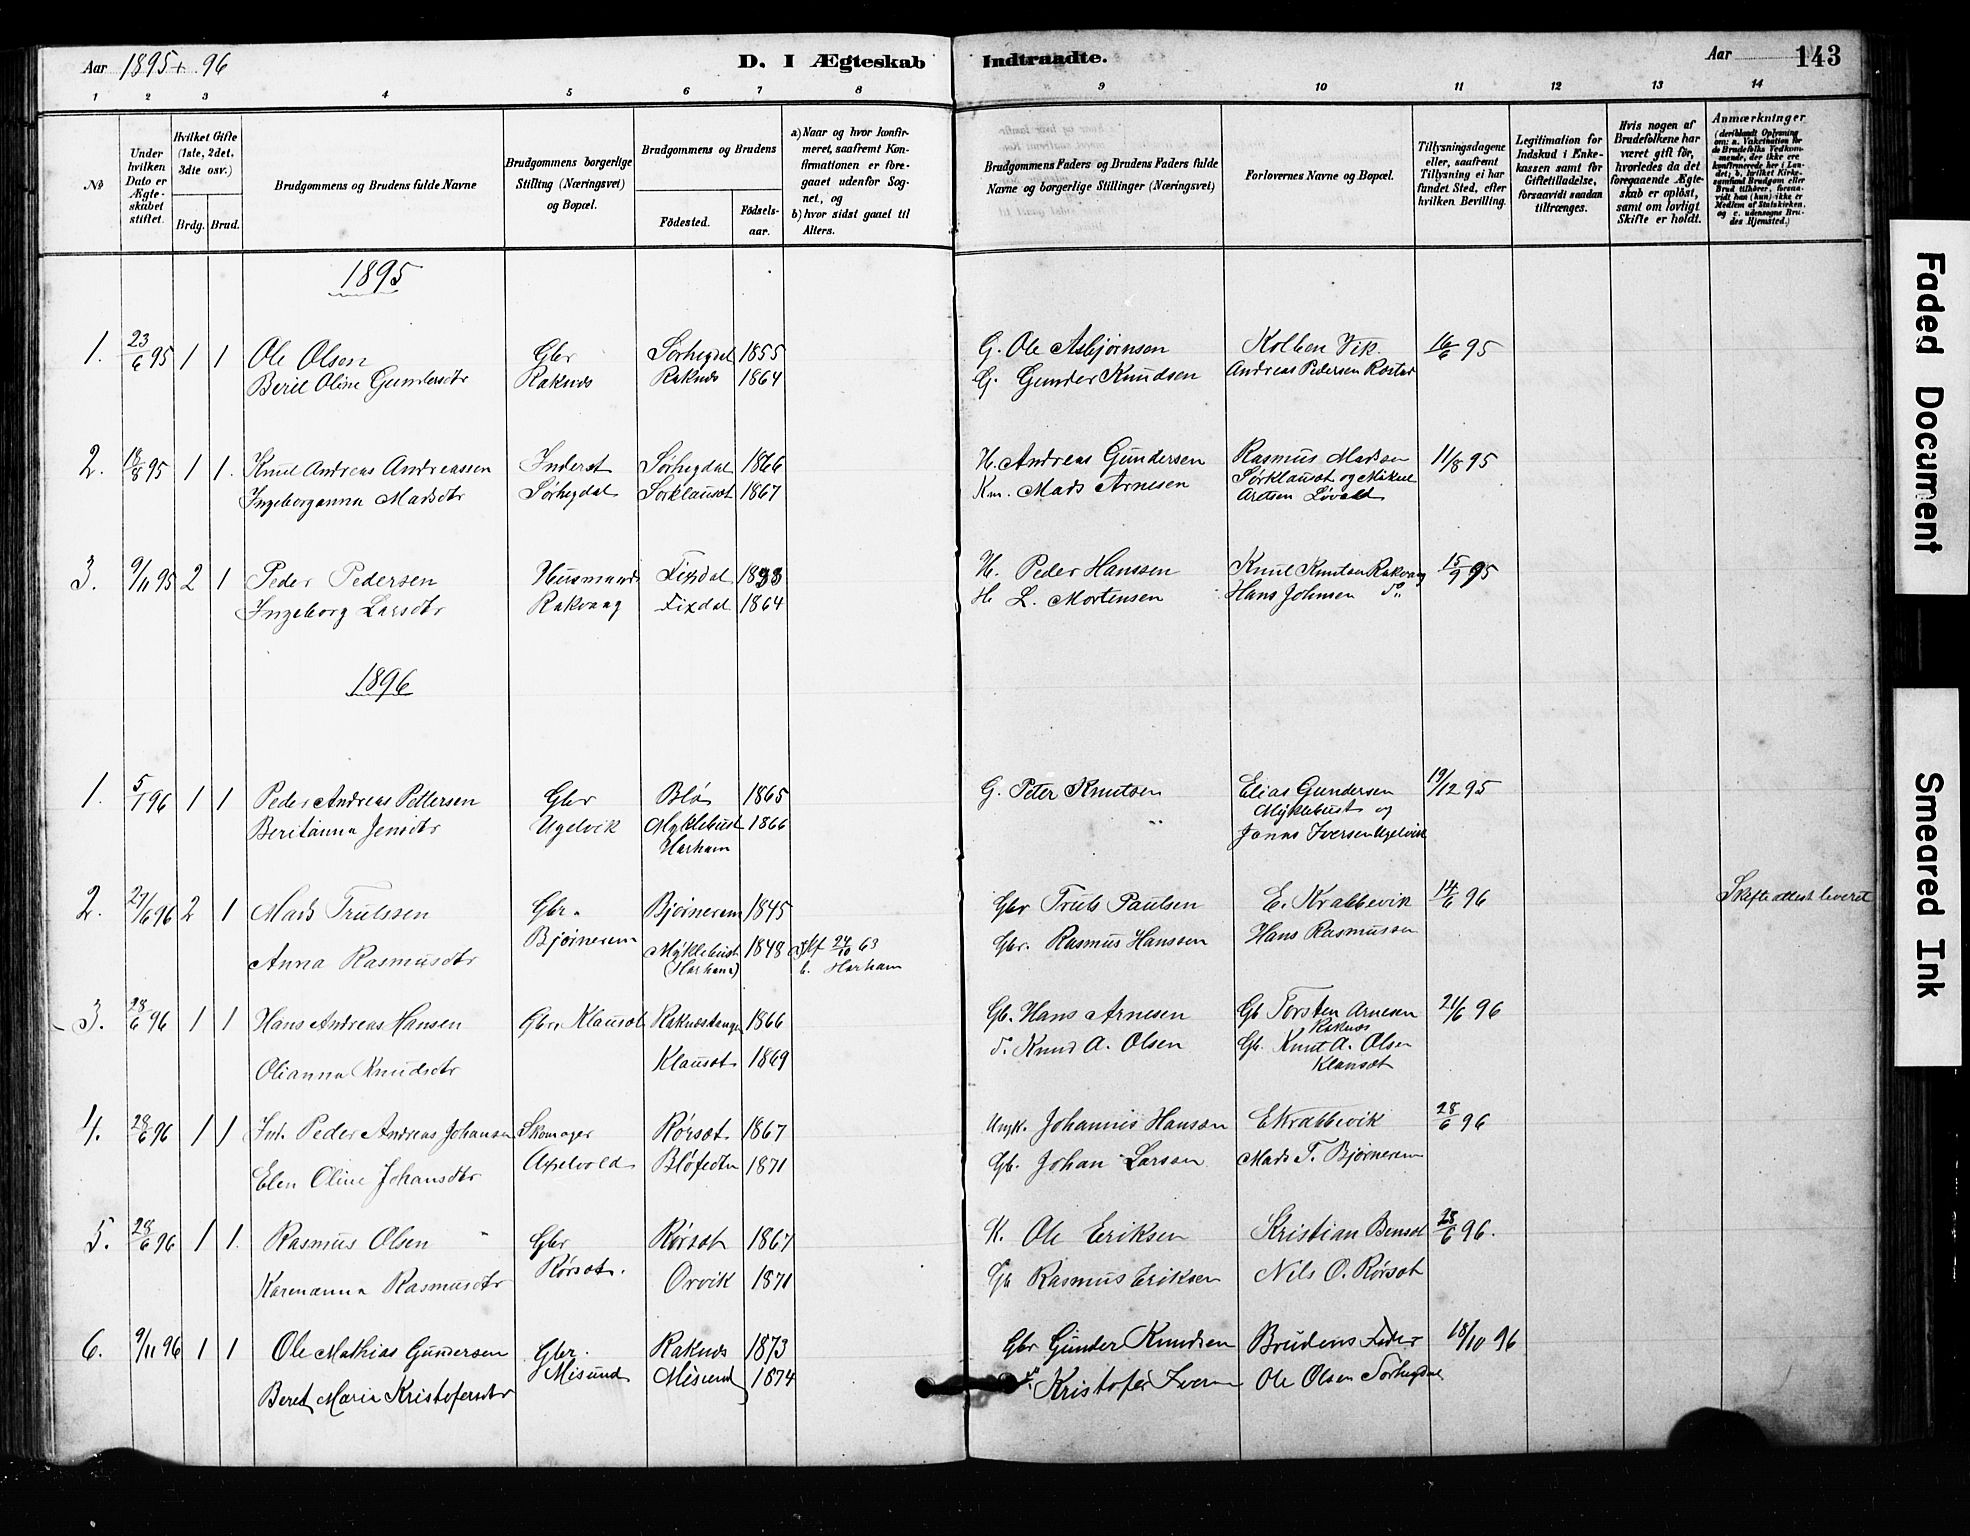 Aar 1895 + 96
D. I Ægteskab Indtraadte.
Aar 143
1 2 3 4 5 6 7 8 9 10 11 12 13 14
No
Under hvilken Dato er Ægteskabet stiftet.
Hvilket Gifte (1ste, 2det, 3die osv.)
Brdg. Brud.
Brudgommens og Brudens fulde Navne
Brudgommens borgerlige Stilling (Næringsvei) og Bopæl.
Brudgommens og Brudens
Fødested. Fødselsaar.
a) Naar og hvor konfirmeret, saafremt Konfirmationen er foregaaet udenfor Sognet, og
b) hvor sidst gaaet til Alters.
Brudgommens Faders og Brudens Faders fulde Navne og borgerlige Stillinger (Næringsvei)
Forlovernes Navne og Bopæl.
Tillysningsdagene eller, saafremt Tillysning ei har fundet Sted, efter hvilken Bevilling.
Legitimation for Indskud i Enkekassen samt for Giftetilladelse, forsaavidt saadan tiltrænges.
Hvis nogen af Brudefolkene har været gift før, hvorledes da det foregaaende Ægteskab er opløst, samt om lovligt Skifte er holdt.
Anmærkninger
(deriblandt Oplysning om: a. Vakcination for de Brudefolks Vedkommende, der ikke ere konfirmerede her i Landet; b. hvilket Kirkesamfund Brudgom eller Brud tilhører, forsaavidt han (hun) ikke er Medlem af Statskirken, og c. udensogns Brudes Hjemsted.)
1895
1. 23/6 95 1 1 Ole Olsen Gbr Sørhegdal 1855 G. Ole Asbjørnsen Kolben Vik. 16/6 95
Berit Oline Gundersdtr Raknes Raknes 1864 G. Gunder Knudsen Andreas Pedersen Rostad
2. 18/8 95 1 1. Knut Andreas Andreassen Inderst Sørhegdal 1866 H. Andreas Gundersen Rasmus Madsen 11/8 95
Ingeborganna Madsdtr Sørhegdal Sørklauset 1867 Km. Mads Arnesen Sørklauset og Mikael
Løvold
3. 9/11 95 2 1 Peder Pedersen Husmand Fixdal 1838 H. Peder Hanssen Knut Knutsen Rakvaag 15/9 95
Ingeborg Larsdtr Rakvaag Fixdal 1864 H. L. Mortensen Hans Johnsen do
1896
1. 5/1 96 1 1 Peder Andreas Pettersen Gbr Blø 1865 G. Peter Knutsen Elias Gundersen 19/12 95
Myklebust og
Beritanna Jensdtr Ugelvik Myklebust 1866 " Jonas Iversen Ugelvik
Harham
2. 27/6 96 2 1 Mads Trulssen Gbr. Bjørnerem 1845 Gbr Truls Paulsen E. Krabbevik 14/6 96 Skifteattest leveret
Bjørnerem
Anna Rasmusdtr Myklebust 1848 24/10 63 Gbr. Rasmus Hanssen Hans Rasmussen
(Harham) b. Harham
3. 28/6 96 1 1 Hans Andreas Hansen Gbr. Klauset Raknestangen 1866 Gb. Hans Arnesen Gb Torsten Arnesen 21/6 96
Raknes
Olianna Knudsdtr Klauset 1869 do Knud A. Olsen Gb. Knut A. Olsen
Klauset
4. 28/6 96 1 1 Peder Andreas Johansen Skomager Rørset 1867 Ungk. Johannes Hansen E Krabbevik 28/6 96
Elen Oline Johansdtr Axelvold 1871 Gb. Johan Larsen Mads T. Bjørnerem
5. 28/6 96 1 1. Rasmus Olsen Gbr Rørset 1867 K. Ole Eriksen Kristian Benset 28/6 96.
Karenanna Rasmusdtr Rørset. Orvik 1871 Gb Rasmus Eriksen Nils O. Rørset
6. 9/11 96 1 1 Ole Mathias Gundersen Gbr. Raknes 1873 Gbr Gunder Knudsen Brudens Fader 18/10 96
Beret Maria Kristofersdtr Misund Misund 1874 do Kristofer Iversen Ole Olsen Sørhegdal
Faded Document
Smeared Ink